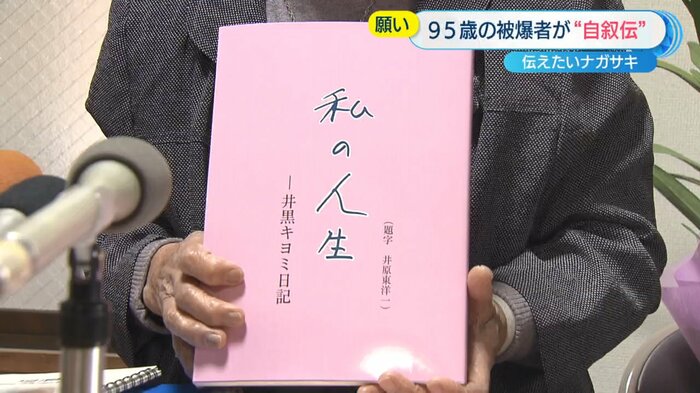 願い
95歳の被爆者が“自叙伝”
伝えたいナガサキ
私の人生
(題字 井原東洋一)
—井黒キヨミ日記